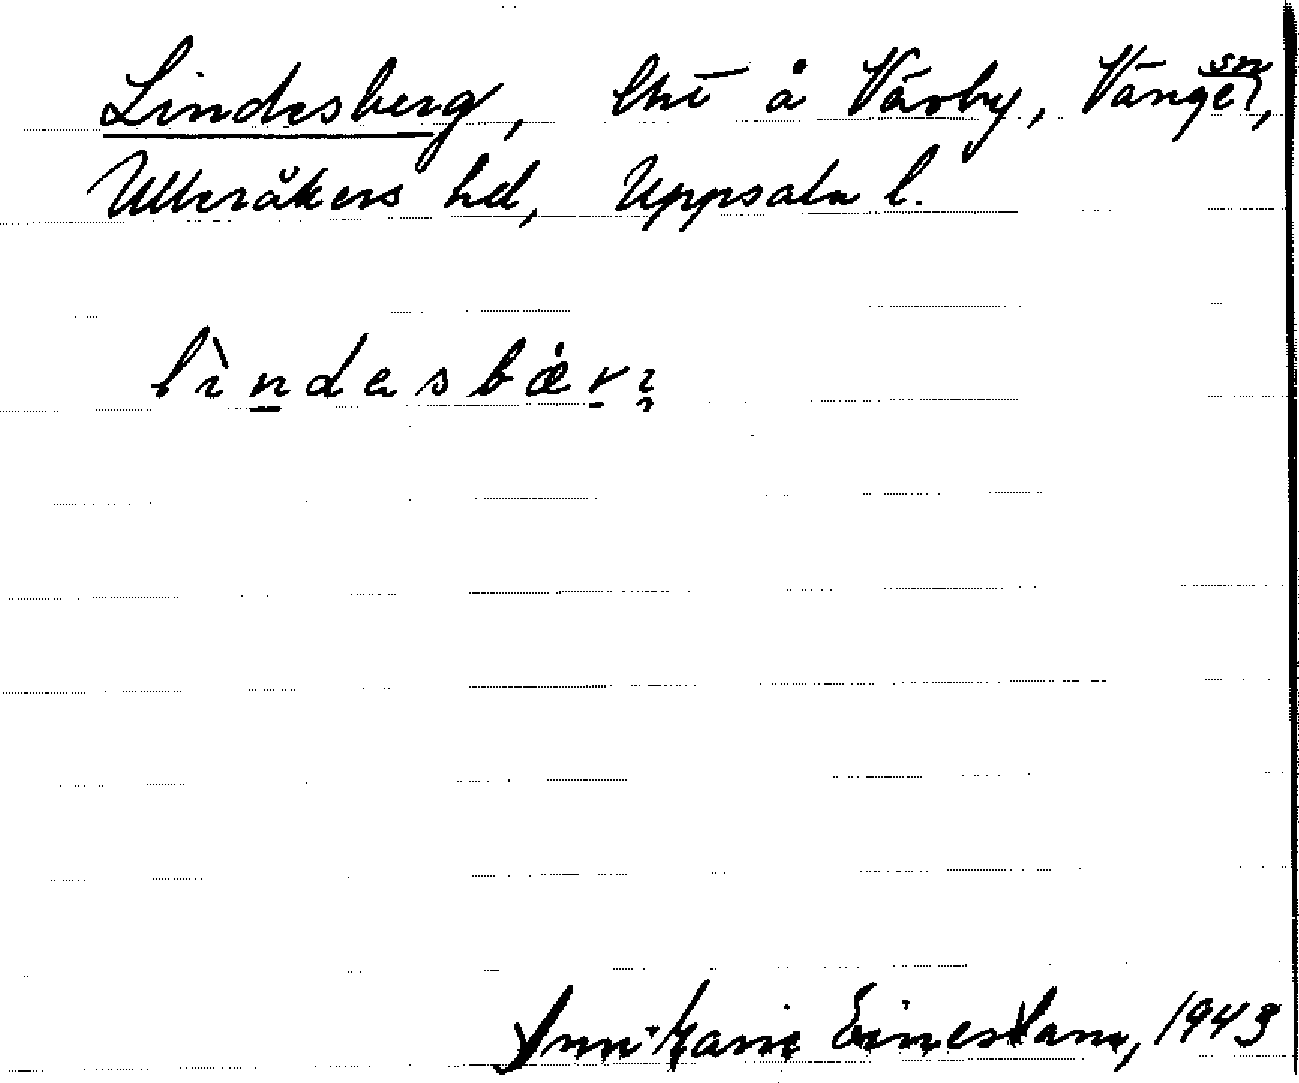 Lindesberg, lht å Vårby, Vänge sn,
Ulleråkers hd, Uppsala l.
lìndesbærj
Ann-Marie 1943